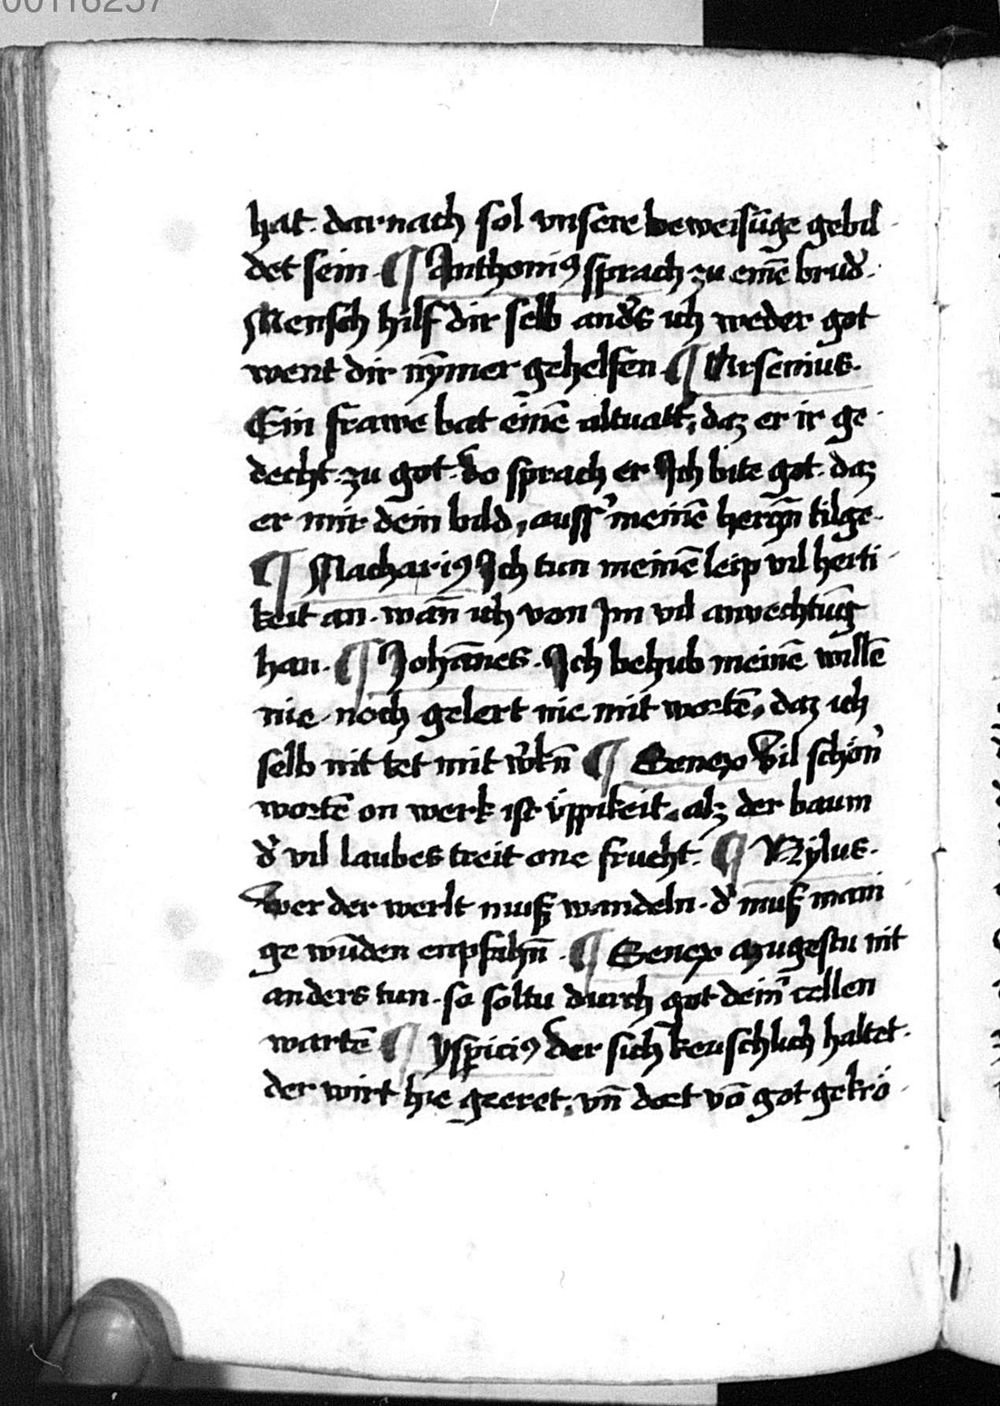 00116257
hat. dar nach sol vnsere beweisūge gebil
det sein. ¶ Anthoniꝰ sprach zu einē brud̾.
Mensch hilf dir selb and̾s ich weder got
went dir nȳmer gehelfen ¶ Arsenius.
Ein frawe bat einē altuatt̾, daz er ir ge
decht. zu got. do sprach er Ich bite got. daz
er mir dein bild, auss meinē herczn̄ tilge.
¶ Machariꝰ Ich tun meinē leip vil herti
keit an. wan̄ ich von Im vil anvechtūg
han. ¶ Johānes. Ich behub meinē willē
nie noch gelert nie mit wortē, daz ich
selb nit tet mit w̾kn̄ ¶ Senex Vil schön̾
wortē on werk ist v̈ppikeit. alz der baum
d̾ vil laubes treit one frucht. ¶ Nylus.
Wer der werlt muß wandeln. d̾ muß mani
ge wūden enpfahn̄. ¶ Senex Mugestu nit
anders tun. so soltu durch got dein̾ cellen
wartē ¶ Yspiciꝰ Der sich keuschlich haltet.
der wirt hie geeret. vn̄ dort vō got gekrö